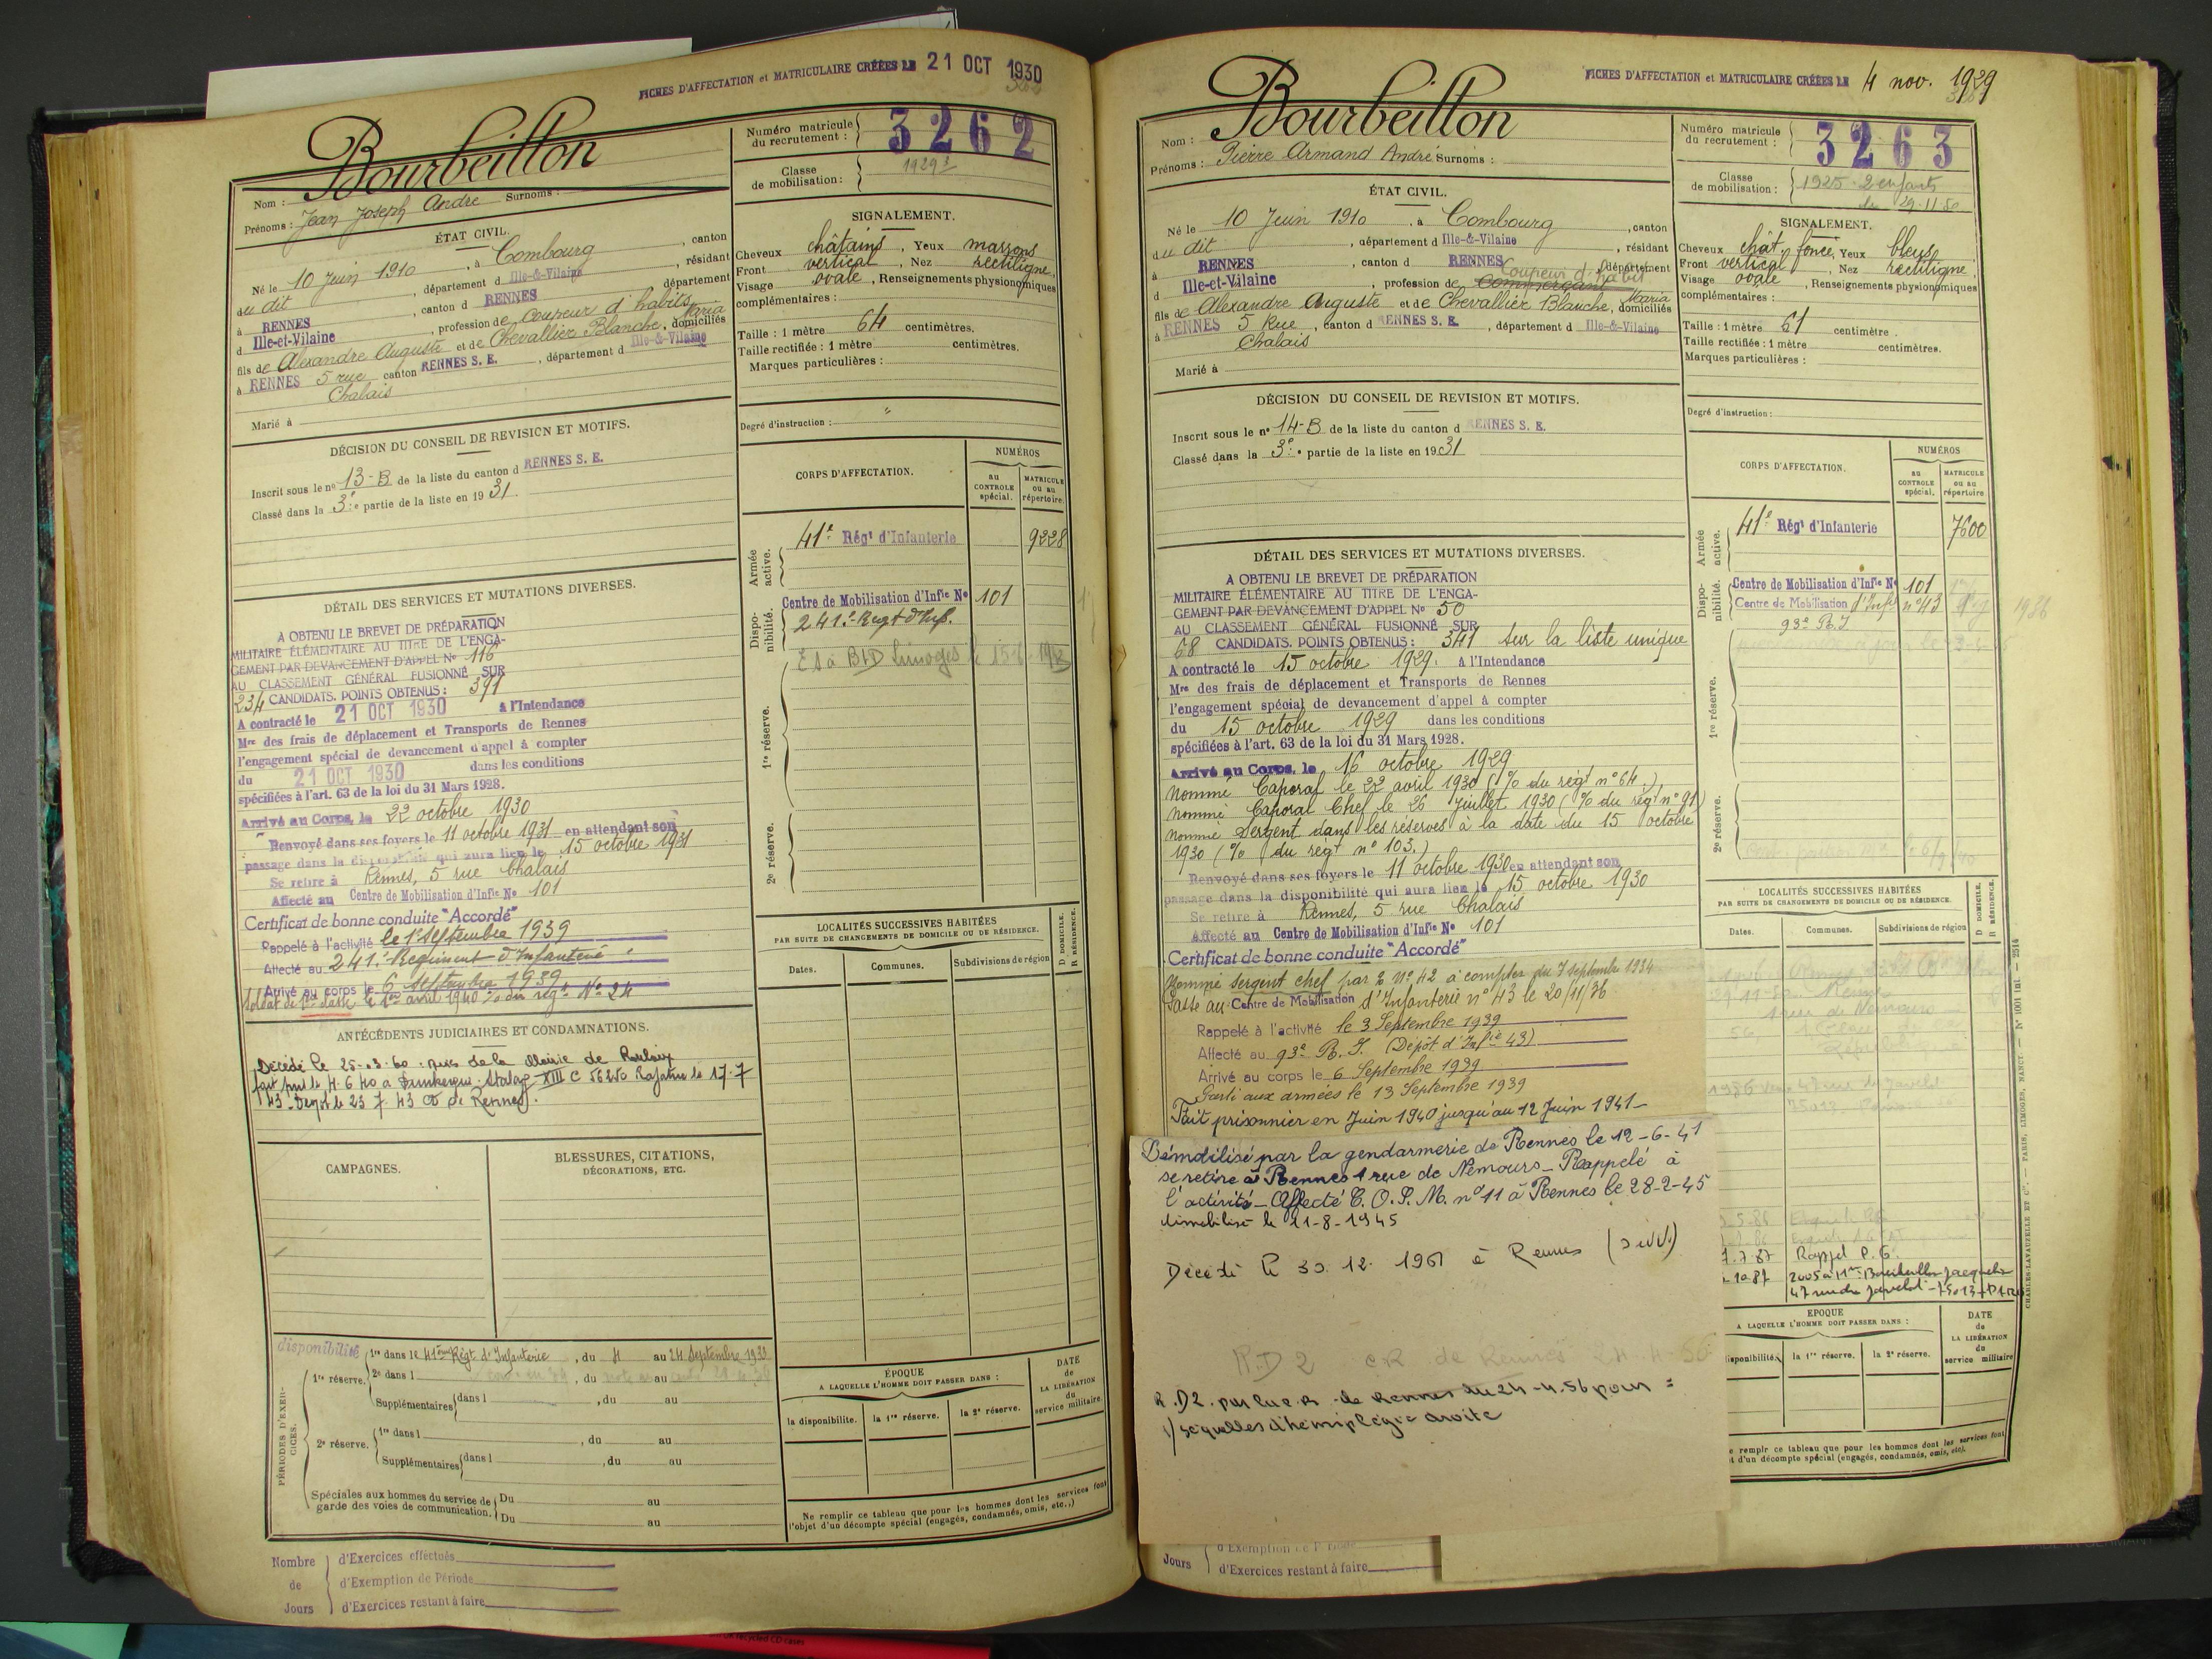 FICHES D'AFFECTATION et MATRICULAIRE CRÉÉES LE 21 OCT 1930
Bourbeillon
Nom :
Prénoms : Jean Joseph André Surnoms :
Numéro matricule du recrutement : 3262
Classe de mobilisation : 1929
ÉTAT CIVIL.
Né le 10 Juin 1910, à Combourg, canton
du dit, département d Ille-&-Vilaine, résidant
à RENNES, canton d RENNES département
d Ille-et-Vilaine, profession de coupeur d'habits
fils de Alexandre Auguste et de Chevallier Blanche, Maria domiciliés
à RENNES 5 rue canton RENNES S. E., département d Ille-&-Vilaine
Chalais
Marié à
SIGNALEMENT.
Cheveux châtains, Yeux marrons
Front vertical, Nez rectiligne,
Visage ovale, Renseignements physionomiques
complémentaires :
Taille : 1 mètre 64 centimètres.
Taille rectifiée : 1 mètre centimètres.
Marques particulières :
Degré d'instruction : "
DÉCISION DU CONSEIL DE REVISION ET MOTIFS.
Inscrit sous le nº 13-B de la liste du canton d RENNES S. E.
Classé dans la 3e partie de la liste en 1931.
DÉTAIL DES SERVICES ET MUTATIONS DIVERSES.
A OBTENU LE BREVET DE PRÉPARATION
MILITAIRE ÉLÉMENTAIRE AU TITRE DE L'ENGA-
GEMENT PAR DEVANCEMENT D'APPEL Nº 116
AU CLASSEMENT GÉNÉRAL FUSIONNÉ SUR
234 CANDIDATS. POINTS OBTENUS : 391
A contracté le 21 OCT 1930 à l'Intendance
Mre des frais de déplacement et Transports de Rennes
l'engagement spécial de devancement d'appel à compter
du 21 OCT 1930 dans les conditions
spécifiées à l'art. 63 de la loi du 31 Mars 1928.
Arrivé au Corps, le 22 octobre 1930
Renvoyé dans ses foyers le 11 octobre 1931 en attendant son
passage dans la disponibilité qui aura lieu le 15 octobre 1931
Se retire à Rennes, 5 rue Chalais
Affecté au Centre de Mobilisation d'Infie Nº 101
Certificat de bonne conduite "Accordé"
Rappelé à l'activité le 1er Septembre 1939
Affecté au 241e Regiment d'Infanterie
Arrivé au corps le 6 Septembre 1939
Soldat de 1ère classe le 1er avril 1940 % du régt Nº 24
CORPS D'AFFECTATION.
NUMÉROS
au CONTROLE spécial.
MATRICULE ou au répertoire.
Armée active.
41e Régt d'Infanterie 9228
Disponibilité.
Centre de Mobilisation d'Infie Nº 101
241e Regt d'Inf.
1re réserve.
2e réserve.
ANTÉCÉDENTS JUDICIAIRES ET CONDAMNATIONS.
Décédé le 25-3-60 avis de la Mairie de
fait pris le 4 6 40 a Dunkerque Stalag XIII C 56250 Rapatrié le 17-7
43 - le 23 7 43 de Rennes.
CAMPAGNES.
BLESSURES, CITATIONS, DÉCORATIONS, ETC.
LOCALITÉS SUCCESSIVES HABITÉES
PAR SUITE DE CHANGEMENTS DE DOMICILE OU DE RÉSIDENCE.
Dates.
Communes.
Subdivisions de région
D DOMICILE. R RÉSIDENCE.
PÉRIODES D'EXERCICES.
disponibilité
1re réserve. 1re dans le 41ème Régt d'Infanterie, du 4 au 24 Septembre 1933
2e dans l , du au
Supplémentaires dans l , du au
2e réserve. 1re dans l , du au
Supplémentaires dans l , du au
Spéciales aux hommes du service de garde des voies de communication. Du au
Du au
ÉPOQUE
A LAQUELLE L'HOMME DOIT PASSER DANS :
la disponibilité.
la 1re réserve.
la 2e réserve.
DATE de LA LIBÉRATION du service militaire.
Ne remplir ce tableau que pour les hommes dont les services font
l'objet d'un décompte spécial (engagés, condamnés, omis, etc.,)
Nombre de Jours
d'Exercices effectués
d'Exemption de Période
d'Exercices restant à faire
FICHES D'AFFECTATION et MATRICULAIRE CRÉÉES LE 4 nov. 1929
Bourbeillon
Nom :
Prénoms : Pierre Armand André Surnoms :
Numéro matricule du recrutement : 3263
Classe de mobilisation : 1925 - 2 enfants
du 29-11-50
ÉTAT CIVIL.
Né le 10 Juin 1910, à Combourg, canton
du dit, département d Ille-&-Vilaine, résidant
à RENNES, canton d RENNES, département
d Ille-et-Vilaine, profession de Commerçant Coupeur d'habit
fils de Alexandre Auguste et de Chevallier Blanche, Maria domiciliés
à RENNES 5 Rue, canton d RENNES S. E., département d Ille-&-Vilaine
Chalais
Marié à
SIGNALEMENT.
Cheveux chât. foncé, Yeux bleus
Front vertical, Nez rectiligne,
Visage ovale, Renseignements physionomiques
complémentaires :
Taille : 1 mètre 61 centimètre.
Taille rectifiée : 1 mètre centimètres.
Marques particulières :
Degré d'instruction :
DÉCISION DU CONSEIL DE REVISION ET MOTIFS.
Inscrit sous le nº 14-B de la liste du canton d RENNES S. E.
Classé dans la 3e partie de la liste en 1931
DÉTAIL DES SERVICES ET MUTATIONS DIVERSES.
A OBTENU LE BREVET DE PRÉPARATION
MILITAIRE ÉLÉMENTAIRE AU TITRE DE L'ENGA-
GEMENT PAR DEVANCEMENT D'APPEL Nº 50
AU CLASSEMENT GÉNÉRAL FUSIONNÉ SUR
68 CANDIDATS. POINTS OBTENUS : 341 sur la liste unique
A contracté le 15 octobre 1929. à l'Intendance
Mre des frais de déplacement et Transports de Rennes
l'engagement spécial de devancement d'appel à compter
du 15 octobre 1929 dans les conditions
spécifiées à l'art. 63 de la loi du 31 Mars 1928.
Arrivé au Corps, le 16 octobre 1929
nommé Caporal le 22 avril 1930 (% du régt nº 64.)
nommé Caporal Chef le 26 Juillet 1930 (% du régt nº 91)
nommé Sergent dans les réserves à la date du 15 octobre
1930 (% du régt nº 103.)
Renvoyé dans ses foyers le 11 octobre 1930 en attendant son
passage dans la disponibilité qui aura lieu le 15 octobre 1930
Se retire à Rennes, 5 rue Chalais
Affecté au Centre de Mobilisation d'Infie Nº 101
Certificat de bonne conduite "Accordé"
Nommé sergent chef par % Nº 42 à compter du 7 septembre 1934
Passé au Centre de Mobilisation d'Infanterie nº 43 le 20/11/36
Rappelé à l'activité le 3 Septembre 1939
Affecté au 93e R. I. (Dépôt d'Infie 43)
Arrivé au corps le 6 Septembre 1939
Parti aux armées le 13 Septembre 1939
Fait prisonnier en Juin 1940 jusqu'au 12 Juin 1941 -
Démobilisé par la gendarmerie de Rennes le 12-6-41
se retire à Rennes 1 rue de Nemours - Rappelé à
l'activité - Affecté C. O. P. M. nº 11 à Rennes le 28-2-45
démobilisé le 21-8-1945
Décédé le 30. 12. 1961 à Rennes
R.D 2 C R de Rennes 24-4-56
R.D2. par la C.R. de Rennes du 24-4.56 pour =
1/ séquelles d'hémiplégie droite
CORPS D'AFFECTATION.
NUMÉROS
au CONTROLE spécial.
MATRICULE ou au répertoire
Armée active.
41e Régt d'Infanterie 7600
Disponibilité.
Centre de Mobilisation d'Infie Nº 101
Centre de Mobilisation d'Infie nº 43
93e R.I
1986
1re réserve.
2e réserve.
LOCALITÉS SUCCESSIVES HABITÉES
PAR SUITE DE CHANGEMENTS DE DOMICILE OU DE RÉSIDENCE.
Dates.
Communes.
Subdivisions de région
D DOMICILE. R RÉSIDENCE.
29-11-50 Rennes
1 rue de Nemours
1986 47 rue du Javelot
75013
7.87 Rappel P.G.
10.87 à Mme Bourbeillon Jacqueline
47 rue du Javelot - 75013 PARIS
EPOQUE
A LAQUELLE L'HOMME DOIT PASSER DANS :
disponibilité.
la 1re réserve.
la 2e réserve.
DATE de LA LIBÉRATION du service militaire
e remplir ce tableau que pour les hommes dont les services font
t d'un décompte spécial (engagés, condamnés, omis, etc).
CHARLES-LAVAUZELLE ET Cie. — PARIS, LIMOGES, NANCY. — Nº 1001 (m) — 2514
Jours
d'Exemption de Période
d'Exercices restant à faire
recycled CD cases